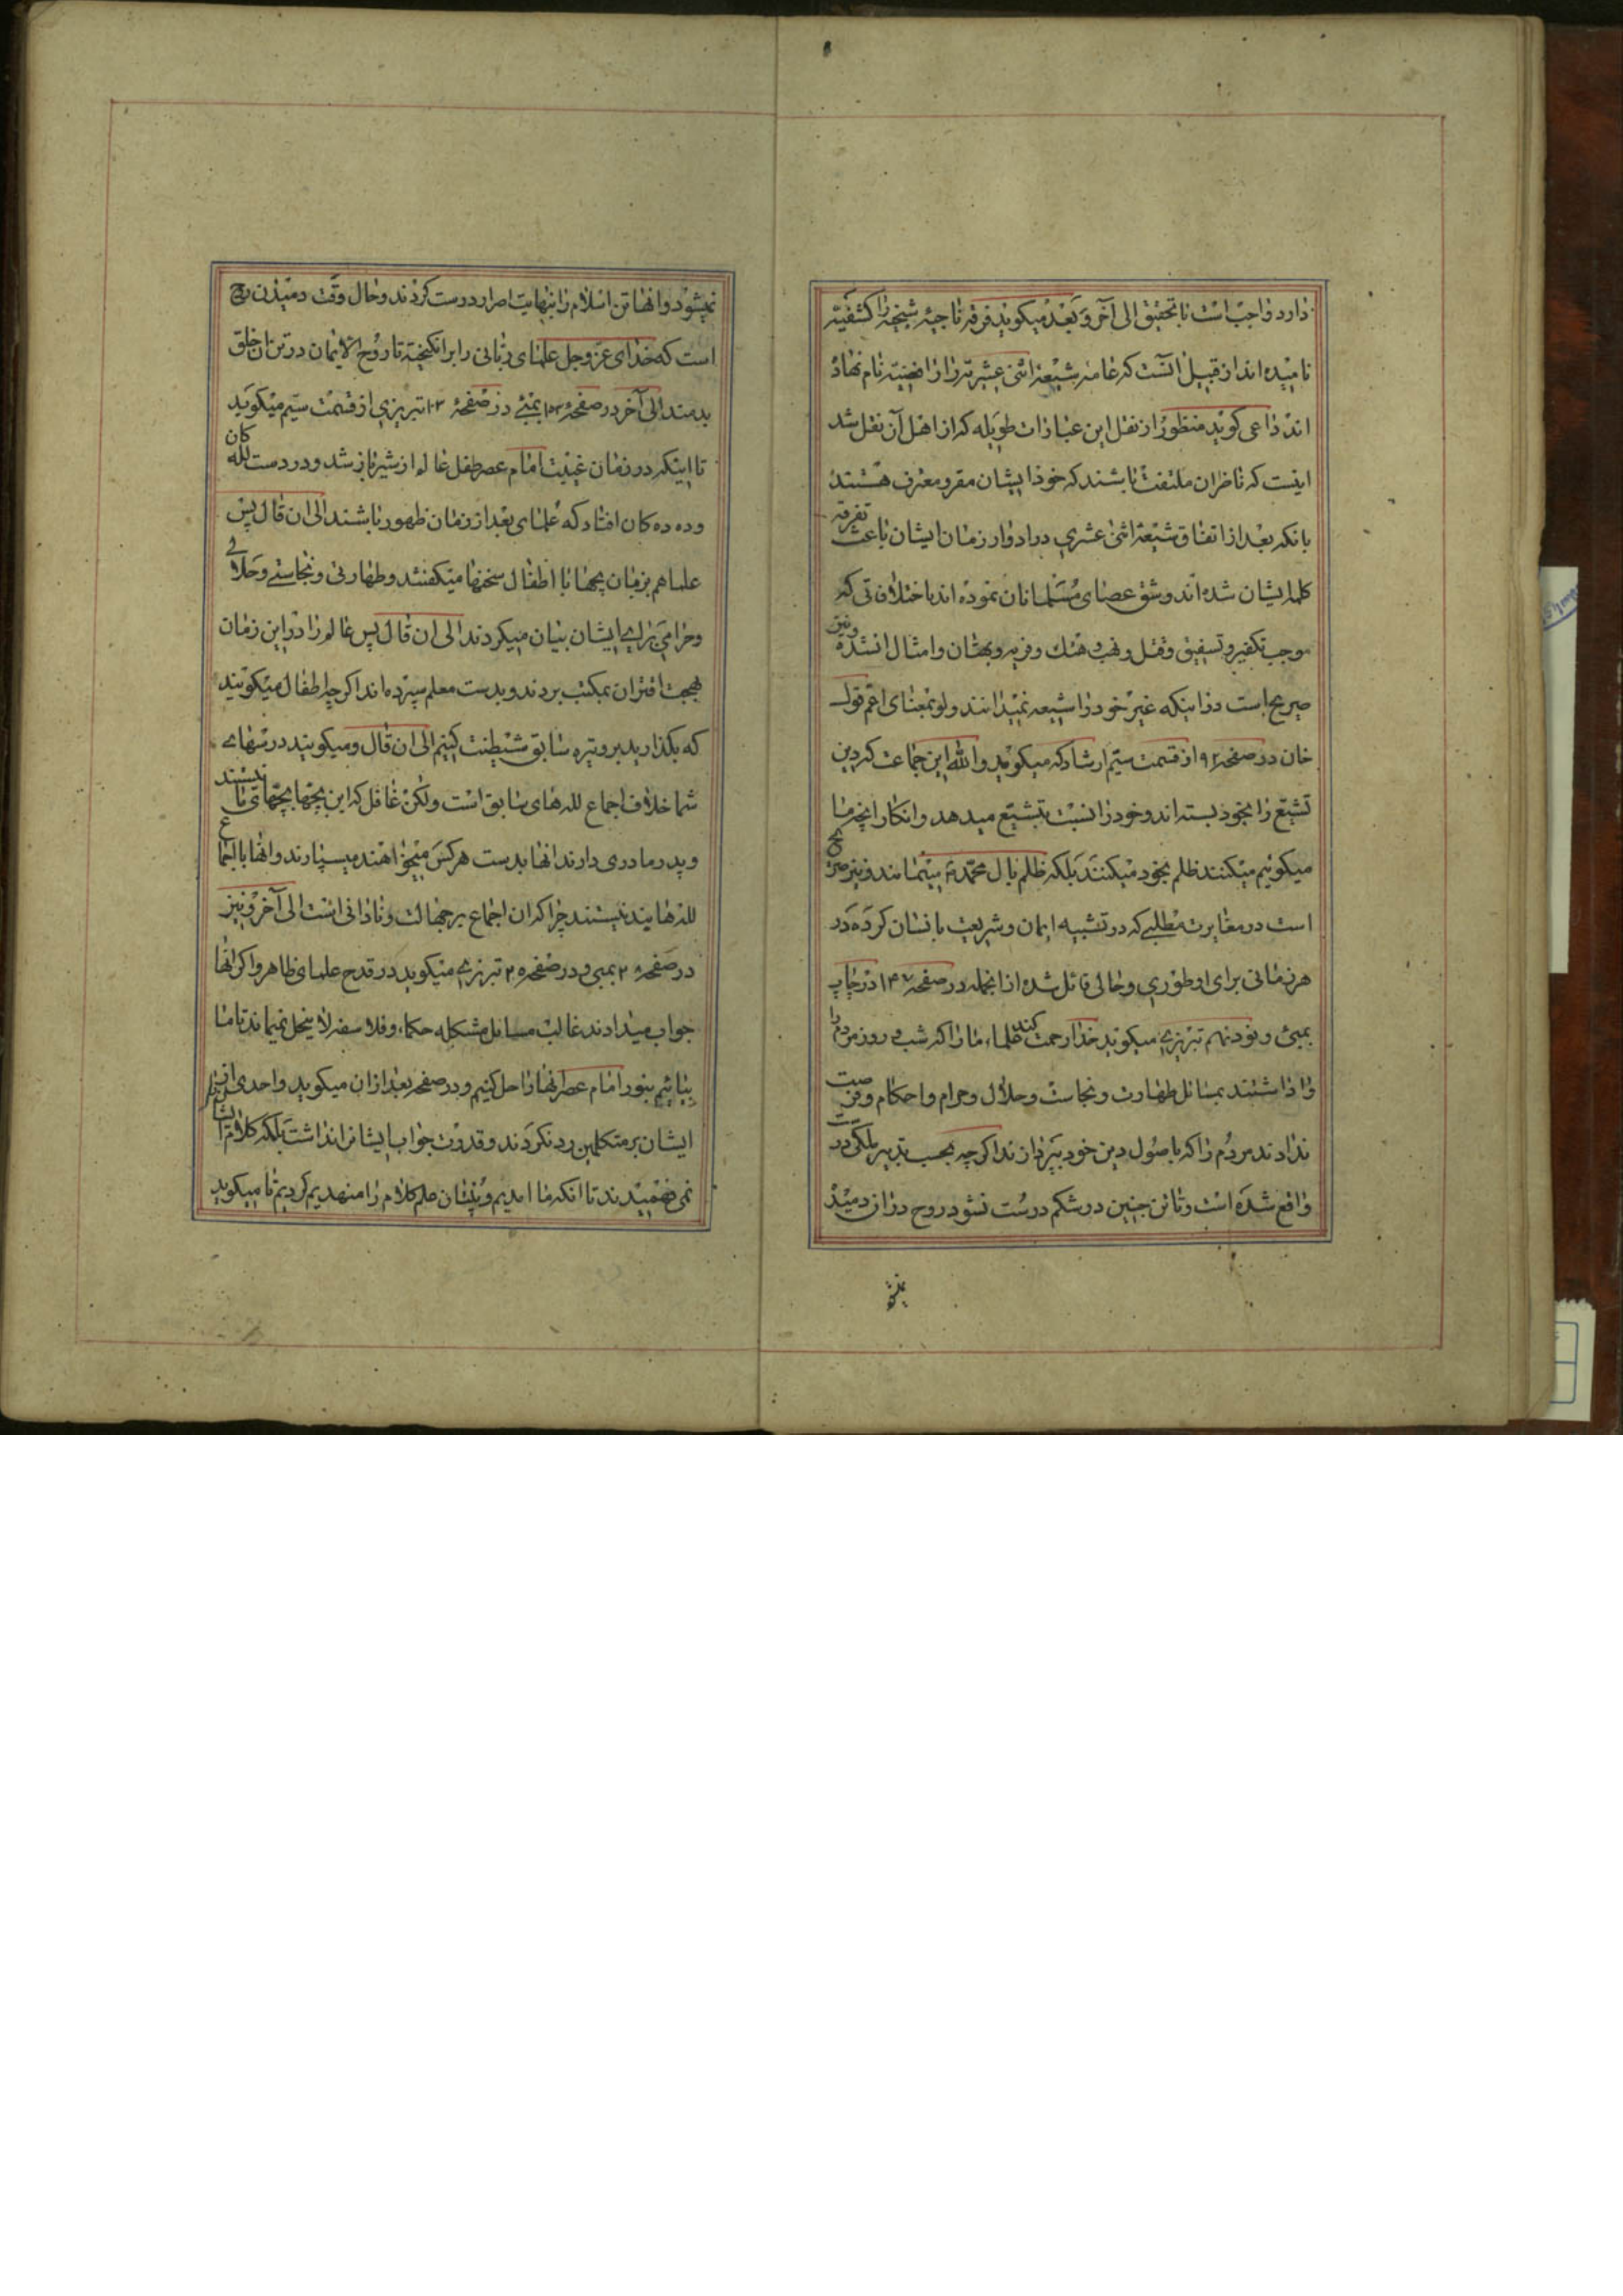 دارد واجب است تا تحقیق الی آخر و بعد میگوید فرقه ناجیه شیخیه را کشفیه
نامیده اند از قبیل آنست که عامه شیعه اثنی عشریه را رافضیه نام نهاده
اند داعی گوید منظور از نقل این عبارات طویله که از اهل آن نقل شد
اینست که ناظران ملتفت باشند که خود ایشان مقر و معترف هستند
بانکه بعد از اتفاق شیعه اثنی عشری در ادوار زمان ایشان باعث تفرقه
کلمه ایشان شده اند و شق عصای مسلمانان نموده اند باختلافاتی که
موجب تکفیر و تسفیق و قتل و نهب و هتک و فریه و بهتان و امثال آنشده و نیز
صریح است در اینکه غیر خود را شیعه نمیدانند ولو بمعنای اعم قوله
خان در صفحه ۹۲ از قسمت سیم ارشاد که میگوید والله این جماعت که دین
تشیع را بخود بسته اند و خود را نسبت بتشیع میدهد و انکار آنچه ما
میگوئیم میکنند ظلم بخود میکنند بلکه ظلم بال محمد مینمایند و نیز صریح
است در مغایرت مطلبی که در تشبیه ایمان و شریعت بانسان کرده در
هر زمانی برای او طوری و حالی قائل شده از انجمله در صفحه ۱۴۷ در چاپ
بمبئی و نود نهم تبریزی میگوید خدا رحمت کند علماء ما را که شب و روز مردم را
وا داشتند بمسائل طهارت و نجاست و حلال و حرام و احکام و فرصت
ندادند مردم را که باصول دین خود بپردازند اگر چه بحسب تدبیر ملکی در
واقع شده است و تا تن جنین در شکم درست نشود روح در آن دمیده
نمیشو
نمیشود و انها تن اسلام را بنهایت اصرار درست کردند و حال وقت دمیدن روح
است که خدای عز و جل علمای ربانی را برانگیخته تا روح الایمان در تن ان خلق
بدمند الی آخر در صفحه ۱۰۲ بمبئی در صفحه ۱۰۳ تبریزی از قسمت سیم میگوید
تا اینکه در زمان غیبت امام عصر طفل عالم از شیر باز شد و در دست لله کان
و دده کان افتاد که علمای بعد از زمان ظهور باشند الی ان قال پس
علما هم بزبان بچها با اطفال سخنها میگفتند و طهارتی و نجاستی و حلالی
و حرامی برای ایشان بیان میکردند الی ان قال پس عالم را در این زمان
بجهت اقتران بمکتب بردند و بدست معلم سپرده اند اگر چه اطفال میگویند
که بگذارید بر وتیره سابق شیطنت کنیم الی ان قال و میگویند درسهای
شما خلاف اجماع لله های سابق است ولکن غافل که این بچها بچهای ما نیستند
و پدر و مادری دارند انها بدست هر کس میخواهند میسپارند و انها با اجماع
لله ها بند نیستند چرا که ان اجماع بر جهالت و نادانی است الی آخر و نیز
در صفحه ۲۰۸ بمبی و در صفحه ۲۰۵ تبریزی میگوید در قدح علمای ظاهر و اگر انها
جواب میدادند غالب مسائل مشکله حکماء و فلاسفه لا ینحل نمیماند تا ما
بیائیم بنور امام عصر انها را حل کنیم و در صفحه بعد از ان میگوید واحدی از
ایشان بر متکلمین رد نکردند و قدرت جواب ایشان را نداشت بلکه کلام ایشان را
نمی فهمیدند تا انکه ما امدیم و بنیان علم کلام را منهدم کردیم تا میگوید